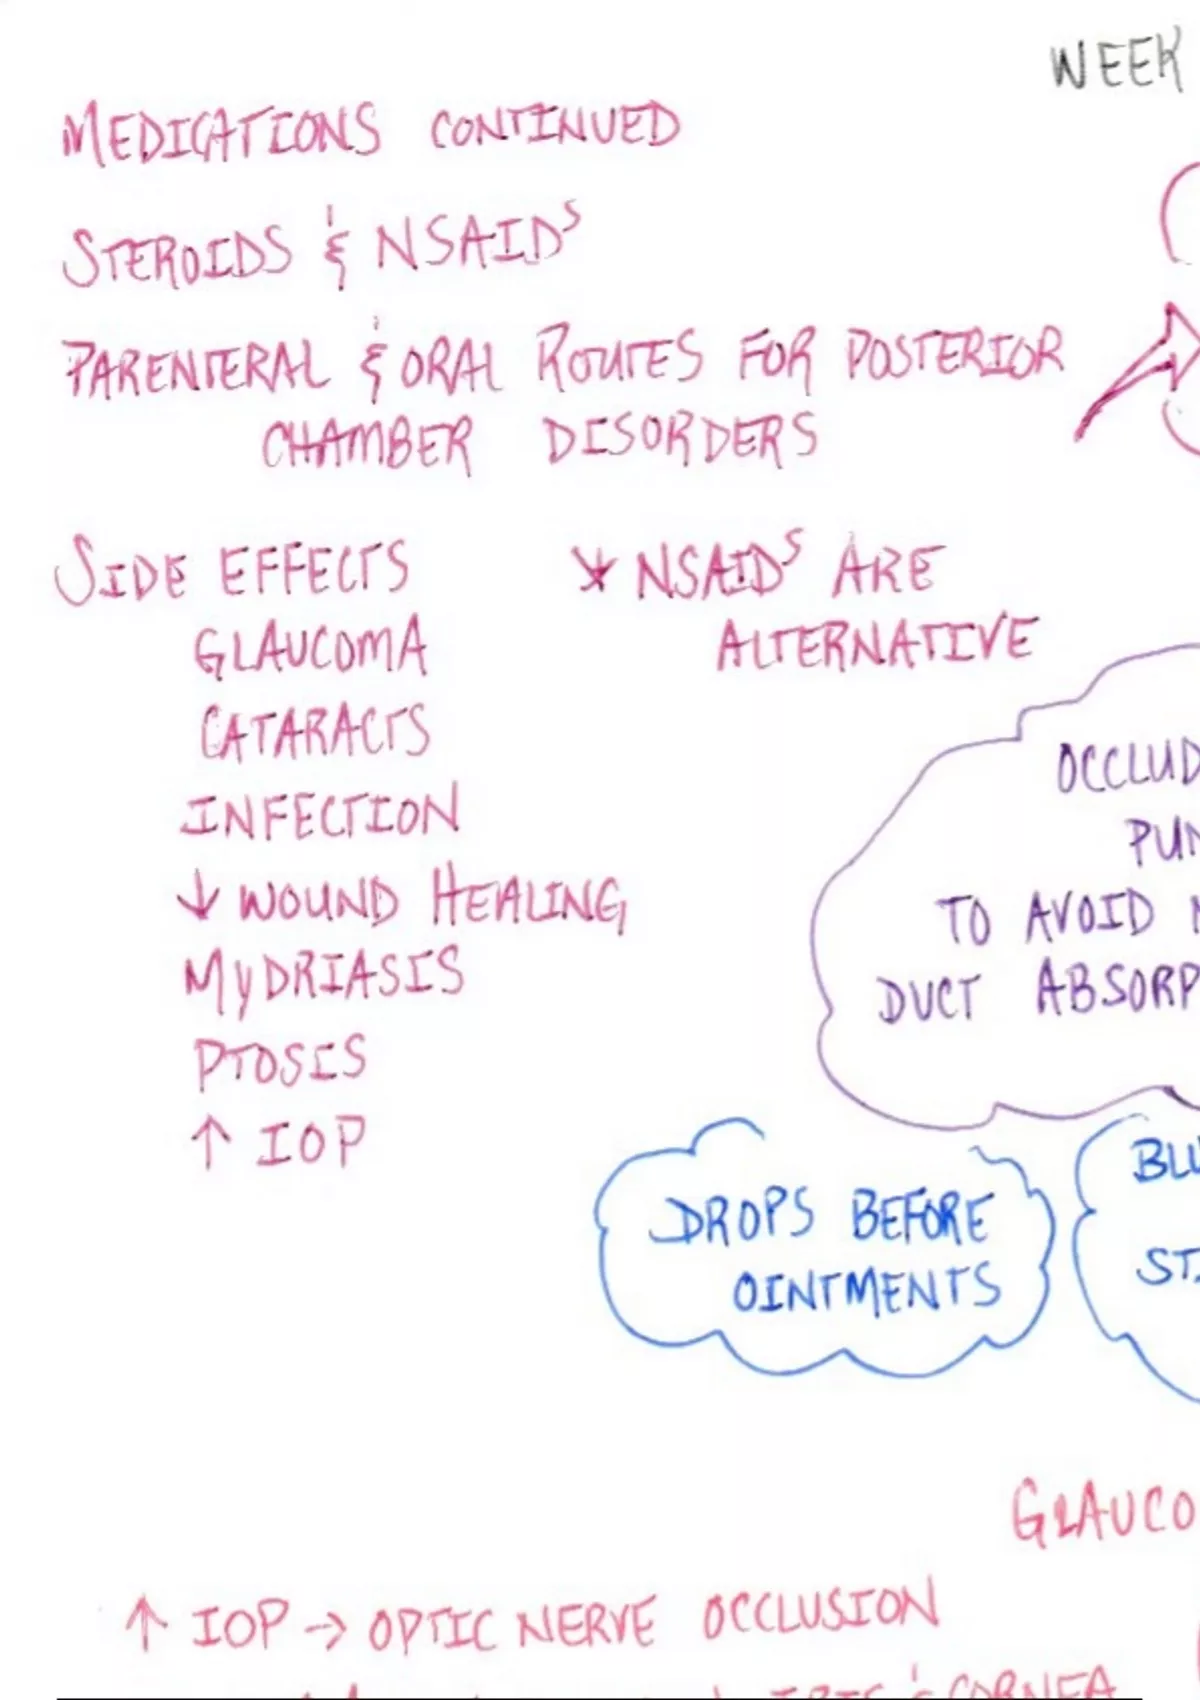 WEEK
MEDICATIONS CONTINUED
STEROIDS & NSAIDS
PARENTERAL & ORAL ROUTES FOR POSTERIOR
CHAMBER DISORDERS
SIDE EFFECTS
GLAUCOMA
CATARACTS
INFECTION
↓ WOUND HEALING
MYDRIASIS
PTOSIS
↑ IOP
* NSAIDS ARE
ALTERNATIVE
OCCLUD
PUN
TO AVOID
DUCT ABSORP
DROPS BEFORE
OINTMENTS
BLU
ST
GLAUCO
↑ IOP → OPTIC NERVE OCCLUSION
IRIS & CORNEA